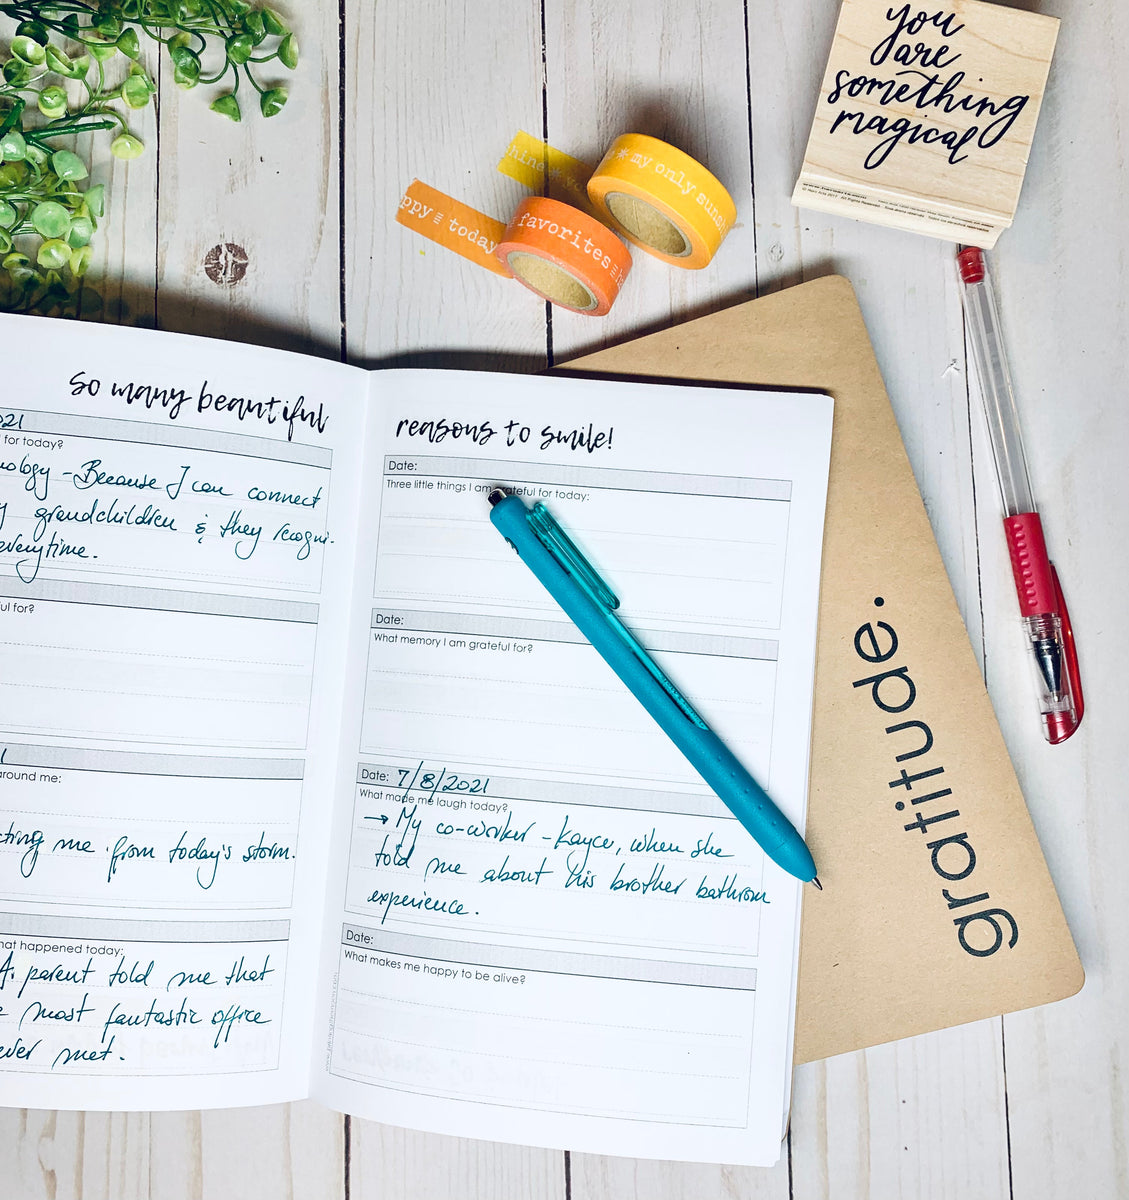 you
are
something
magical
hine * yo
* my only sunsh
ppy ≡ today
favorites ≡
so many beautiful
021
for today?
nology - Because I can connect
grandchildren & they recogni-
everytime.
ul for?
around me:
cting me from today's storm.
hat happened today:
A. parent told me that
most fantastic office
ever met.
reasons to smile!
Date:
Three little things I am grateful for today:
Date:
What memory I am grateful for?
Date: 7/8/2021
What made me laugh today?
→ My co-worker - Kayce, when she
told me about his brother bathroom
experience.
Date:
What makes me happy to be alive?
gratitude.